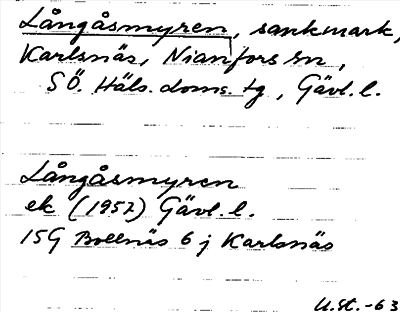 Långåsmyren, sankmark,
Karlsnäs, Nianfors sn,
SÖ. Häls. doms. tg, Gävl. l.
Långåsmyren
ek (1957) Gävl. l.
15G Bollnäs 6 j Karlsnäs
U. St. -63